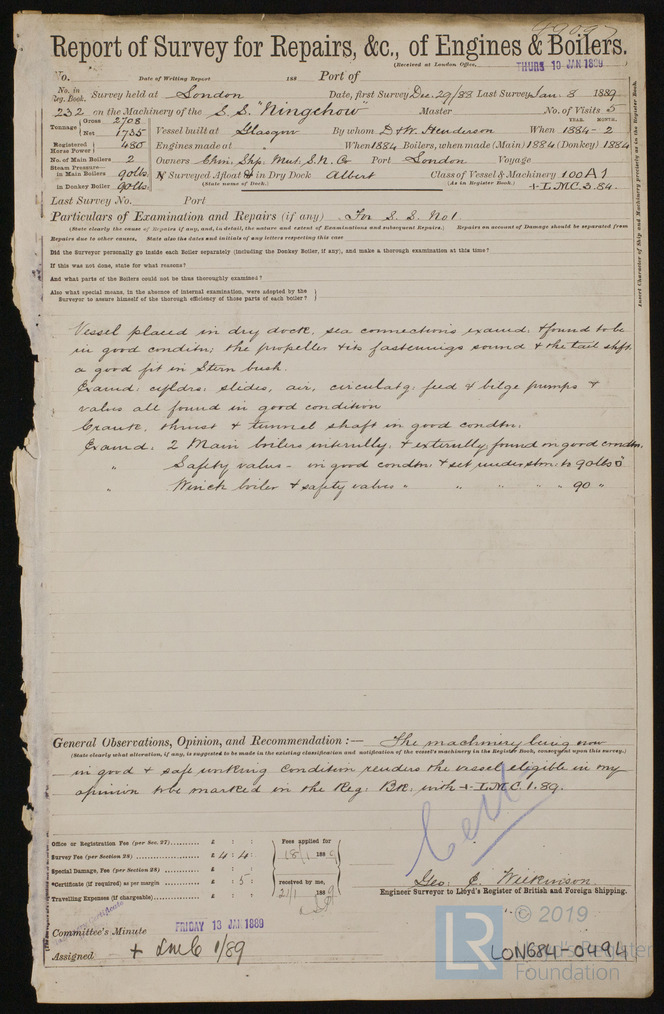 49097
Report of Survey for Repairs, &c., of Engines & Boilers.
(Received at London Office, THURS 10 JAN 1889
No. Date of Writing Report 188 Port of
No. in Reg. Book. Survey held at London Date, first Survey Dec. 29/88 Last Survey Jan. 8 1889
232 on the Machinery of the S.S. "Ningchow" Master No. of Visits 5
Tonnage Gross 2708 Net 1735 Vessel built at Glasgow By whom D & W. Henderson When 1884-2 YEAR. MONTH.
Registered Horse Power 480 Engines made at " When 1884 Boilers, when made (Main) 1884 (Donkey) 1884
No. of Main Boilers 2 Owners Chin. Shp. Mut. S.N. Co Port London Voyage
Steam Pressure— in Main Boilers 90lbs. If Surveyed Afloat & in Dry Dock Albert Class of Vessel & Machinery 100A1
in Donkey Boiler 90lbs. (State name of Dock.) (As in Register Book.) + L.M.C. 2.84.
Last Survey No. Port
Particulars of Examination and Repairs (if any) For S.S. No 1
(State clearly the cause of Repairs if any, and, in detail, the nature and extent of Examinations and subsequent Repairs.) Repairs on account of Damage should be separated from
Repairs due to other causes, State also the dates and initials of any letters respecting this case
Did the Surveyor personally go inside each Boiler separately (including the Donkey Boiler, if any), and make a thorough examination at this time?
If this was not done, state for what reasons?
And what parts of the Boilers could not be thus thoroughly examined?
Also what special means, in the absence of internal examination, were adopted by the
Surveyor to assure himself of the thorough efficiency of those parts of each boiler?
Insert Character of Ship and Machinery precisely as in the Register Book.
Vessel placed in dry dock, sea connections examd. & found to be
in good conditn; the propeller & its fastenings sound & the tail shft.
a good fit in Stern bush.
Examd. cyldrs: slides, air, circulatg: feed & bilge pumps &
valves all found in good condition
Crank, thrust & tunnel shaft in good condtn:
Examd: 2 Main boilers internlly: & externlly; found in good condtn.
" Safety valves - in good condtn & set under stm: to 90lbs □"
" Winch boiler & safety valves " " " " " " 90 "
General Observations, Opinion, and Recommendation:— The machinery being now
(State clearly what alteration, if any, is suggested to be made in the existing classification and notification of the vessel's machinery in the Register Book, consequent upon this survey.)
in good & safe working condition renders the vessel eligible in my
opinion to be marked in the Reg: Bk: with + L.M.C. 1.89.
Cert
Office or Registration Fee (per Sec. 27) £ : :
Survey Fee (per Section 28) £ 4 : 4 :
Special Damage, Fee (per Section 28) £ : :
*Certificate (if required) as per margin £ : 5 :
Travelling Expenses (if chargeable) £ : :
Fees applied for
18/1 1889
received by me,
21/1 1889
Geo. C. Wilkinson.
Engineer Surveyor to Lloyd's Register of British and Foreign Shipping.
Committee's Minute FRIDAY 18 JAN 1889
Assigned + LMC 1/89
© 2019
LR
Lloyd's Register
Foundation
LON684-0494